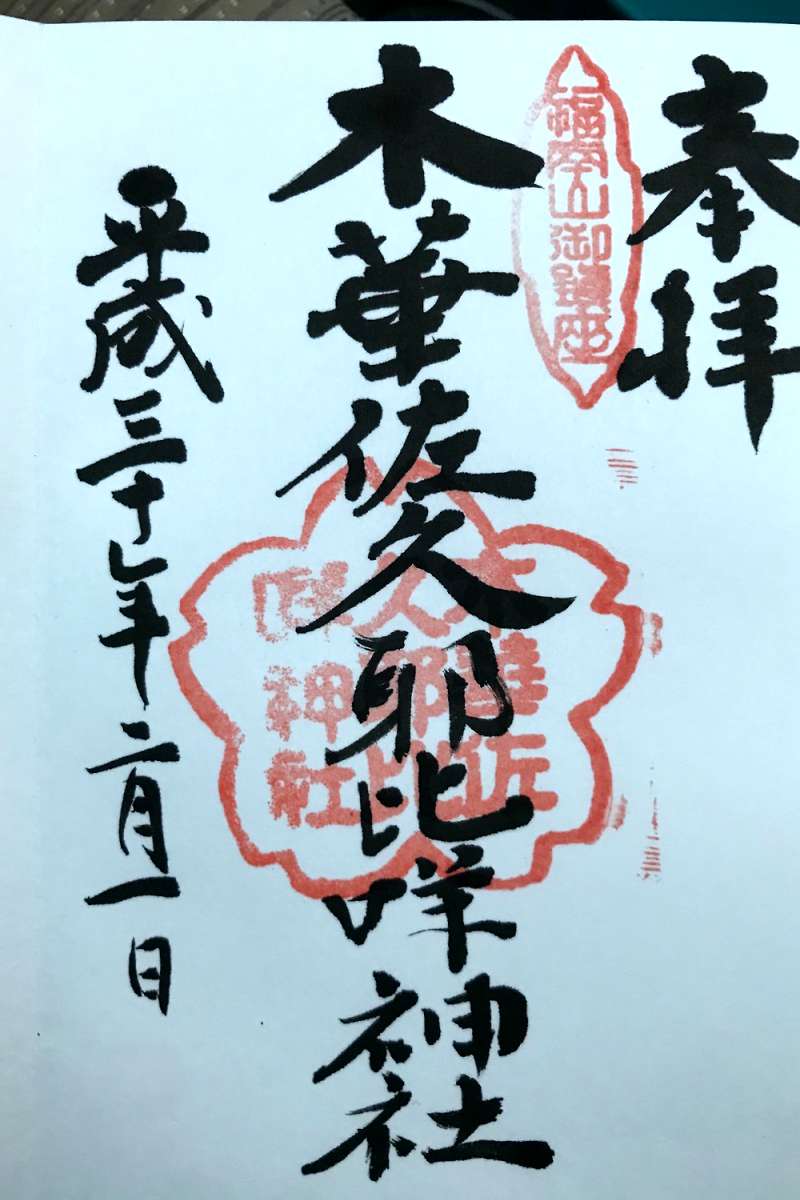 奉拝
福南山御鎮座
木華佐久耶比咩神社
木華佐
久耶比
咩神社
平成三十年二月一日